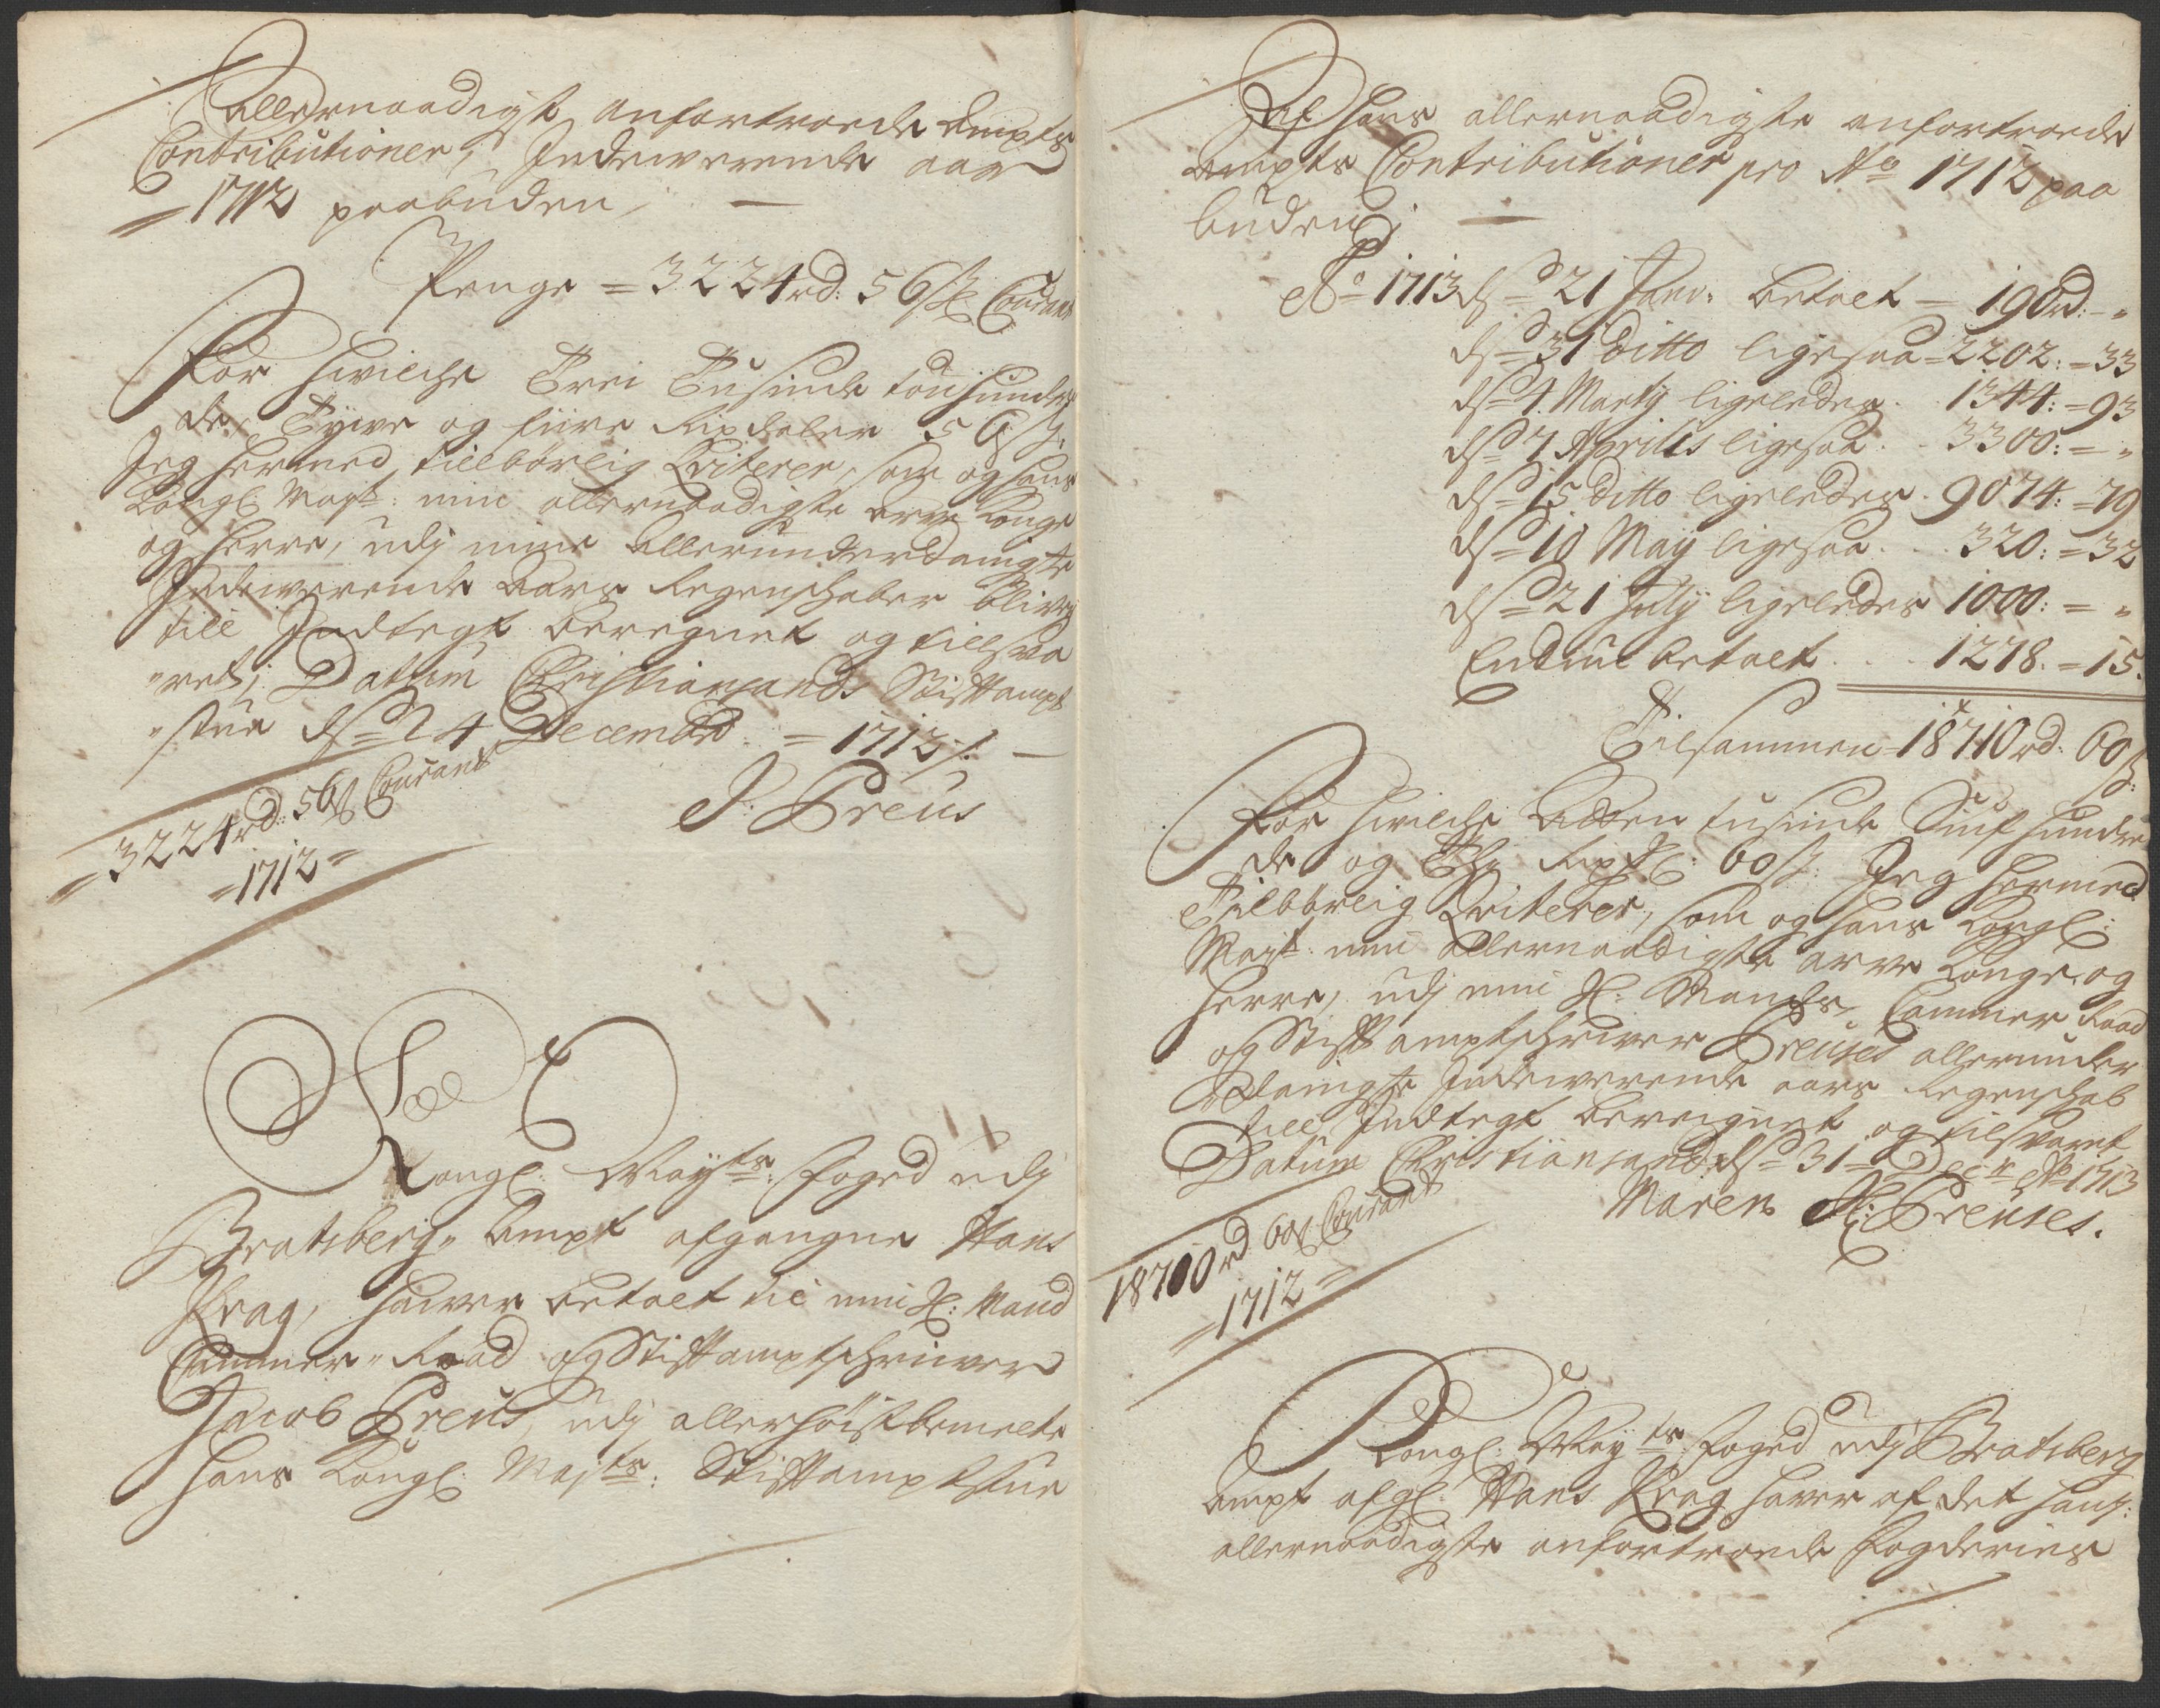 Allernaadigst anfortroede Ampts
Contributioner, Indeværende aar
1712 paabuden,
Penge = 3224 rd: 56 ß Courant
For hvilche Trei Tusinde tou hundre
de, Tyve og fiire Rixdaler 56 ß,
Jeg hermed tilbørlig Qviterer, som og hans
Kongl: Mayt: min allernaadigste Arve Konge
og Herre, udj mine Allerunderdanigste
Indeværende Aars Regenschaber bliver
till Indtegt beregnet og tillsva
ret; Dattum Christiansands Stiftampt
stue dend 24 Decembr = 1712 /: —
J: Preus
3224 rd: 56 ß Courant
= 1712 =
Kongl: Mayts: foged udj
Bratsberg Ampt afgangne Hans
Krag, haver betalt til min Sl: Mand
Cammer Raad og Stiftamptschriver
Jacob Preus, udj allerhøist bemelte
hans Kongl: Mayts: Stiftamptstue
Af hans allernaadigste anfortroede
Ampts Contributioner pro Ao 1712 paa
buden;
Ao 1713 dend 21 Janv: betalt — 190 rd: - "
dend 31 ditto ligesaa = 2202: = 33
dend 4 Marty ligeledes . 1344: = 93
dend 7 Aprilis ligesaa . 3300: = "
dend 15 ditto ligeledes . 9074: = 79
dend 10 May ligesaa . . 320: = 32
dend 21 July ligeledes 1000: = "
Endnu betalt . . . 1278. = 15.
Tilsammen = 18710 rd: 60 ß:
For hvilche Atten tusinde Siuf hundre
de og Thj Rixdl: 60 ß: Jeg hermed
Tilbørlig Qviterer, som og hans Kongl:
Mayt: min allernaadigste Arve Konge og
Herre, udj min Sl: Mands, Cammer Raad
og Stiftamptschriver Preuses allerunder
danigste Indeværende aars Regenschab
till Indtegt bereignet og tilsvaret
Datum Christiansand dend 31 Decbr Ao 1713
Maren Sl: Preuses.
18710 rd 60 ß Courant
= 1712 =
Kongl: Mayts foged udj Bratsberg
Ampt afgl: Hans Krag haver af det hans
allernaadigste anfortroede Fogderies